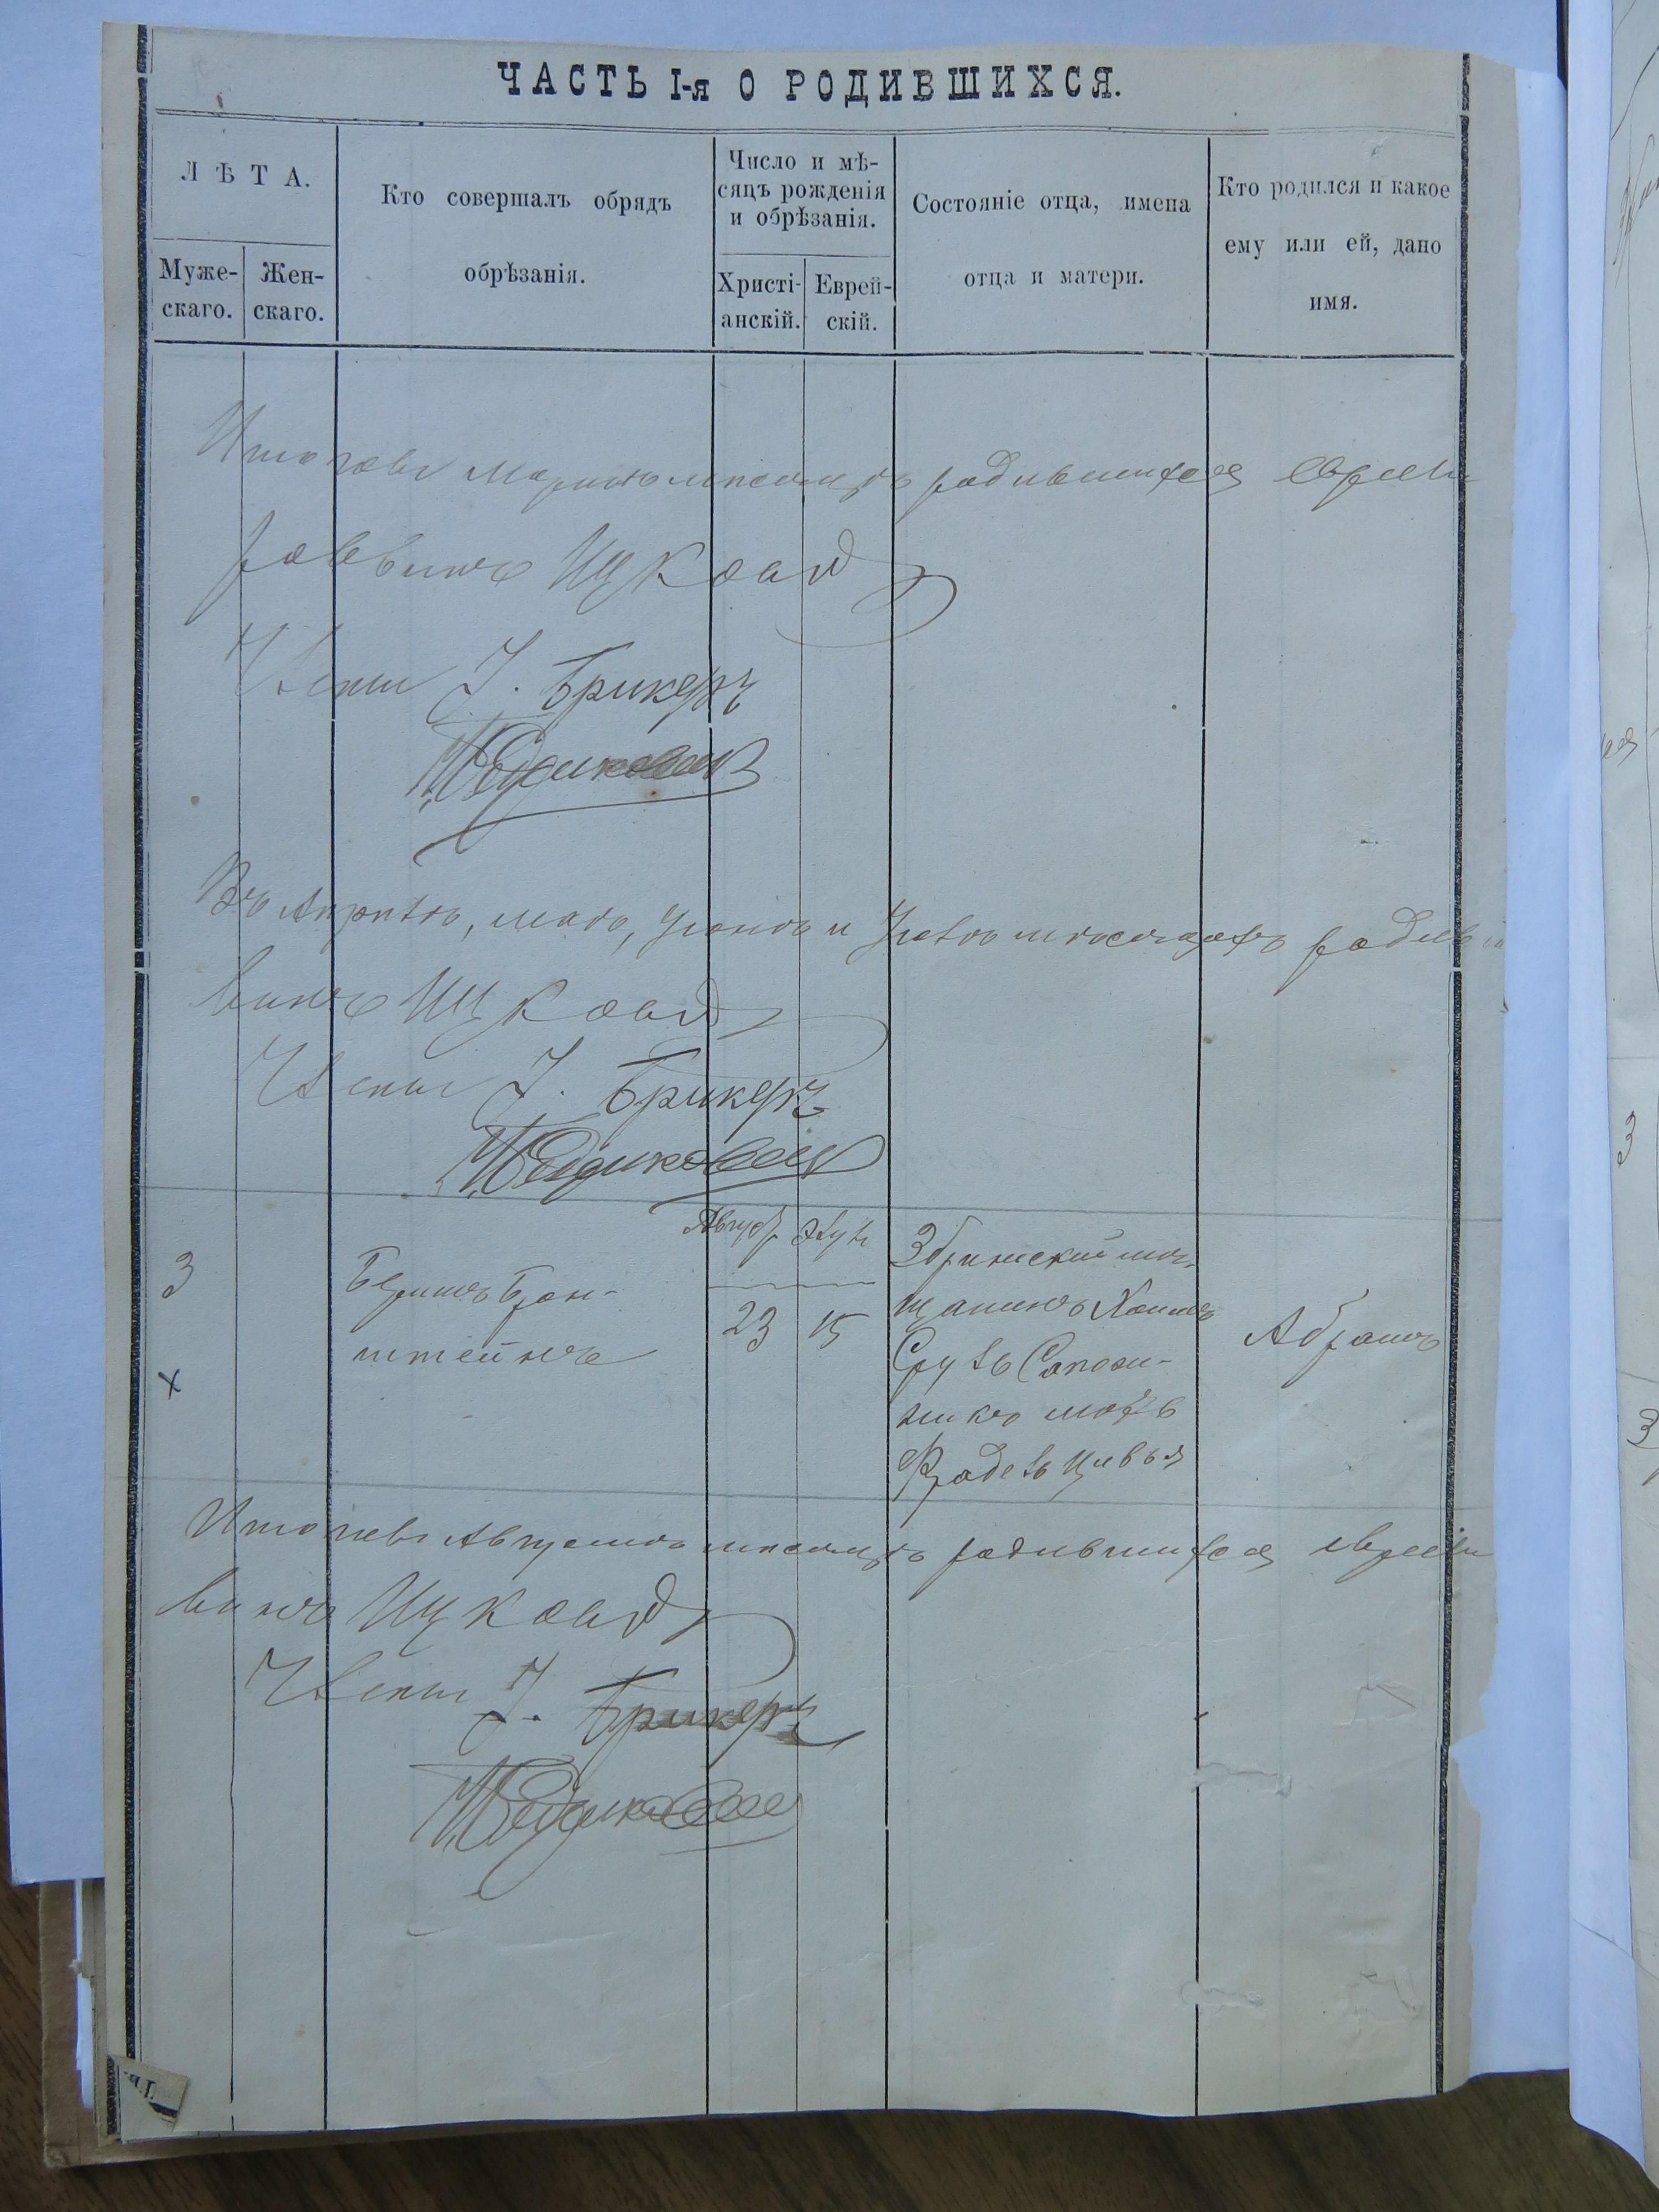 ЧАСТЬ I-я О РОДИВШИХСЯ.
ЛѢТА.
Муже-
скаго.
Жен-
скаго.
Кто совершалъ обрядъ
обрѣзанія.
Число и мѣ-
сяцъ рожденія
и обрѣзанія.
Христі-
анскій.
Еврей-
скій.
Состояніе отца, имена
отца и матери.
Кто родился и какое
ему или ей, дано
имя.
Итого въ Мартѣ мѣсяцѣ родившихся евреевъ
раввинъ
Члены І. Брикеръ
Въ Апрѣлѣ, маѣ, Іюнѣ и Іюлѣ мѣсяцахъ родивш
винъ
Члены І. Брикеръ
3
х
Беришъ Брон-
штейнъ
Август
23
Элул
15
мѣ-
щанинъ Хаимъ
Сруль Сапож-
никъ мать
Фрадель Цивья
Абрамъ
Итого въ Августѣ мѣсяцѣ родившихся евреевъ
винъ
Члены І. Брикеръ
3